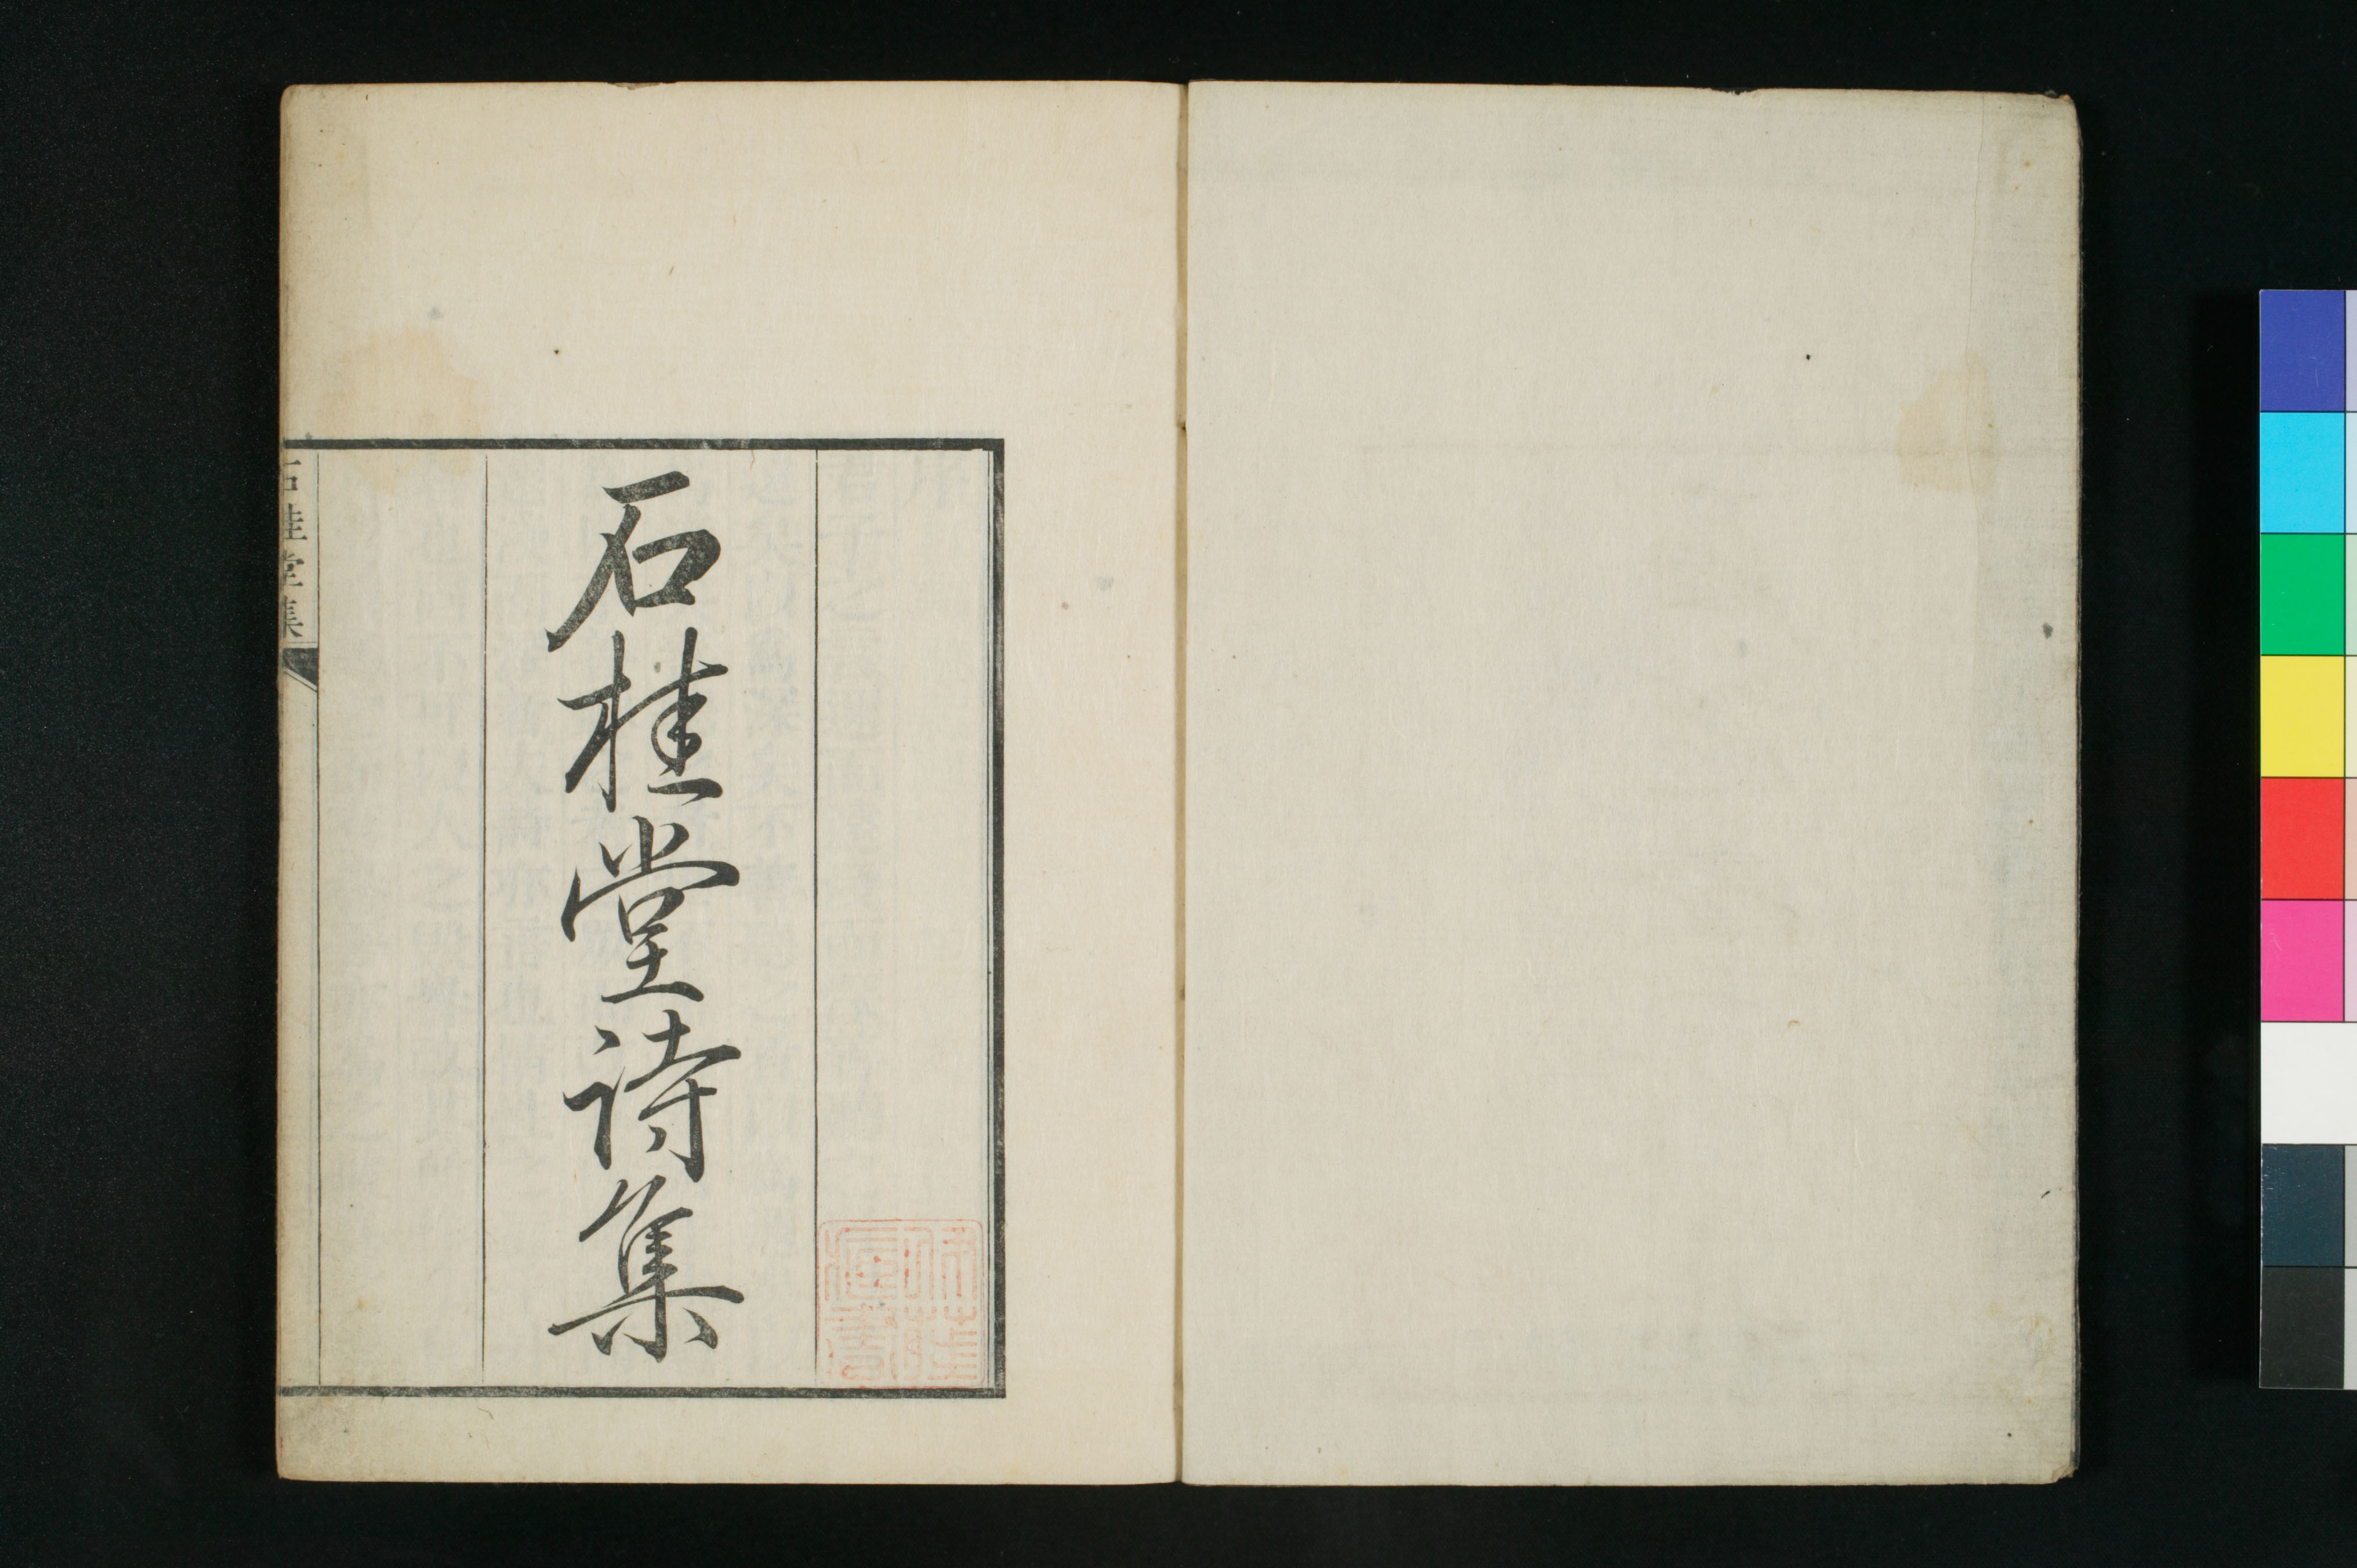 石桂堂詩集
石桂堂集